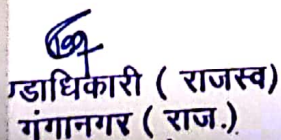 ग्डाधिकारी ( राजस्व)
गंगानगर ( राज.)